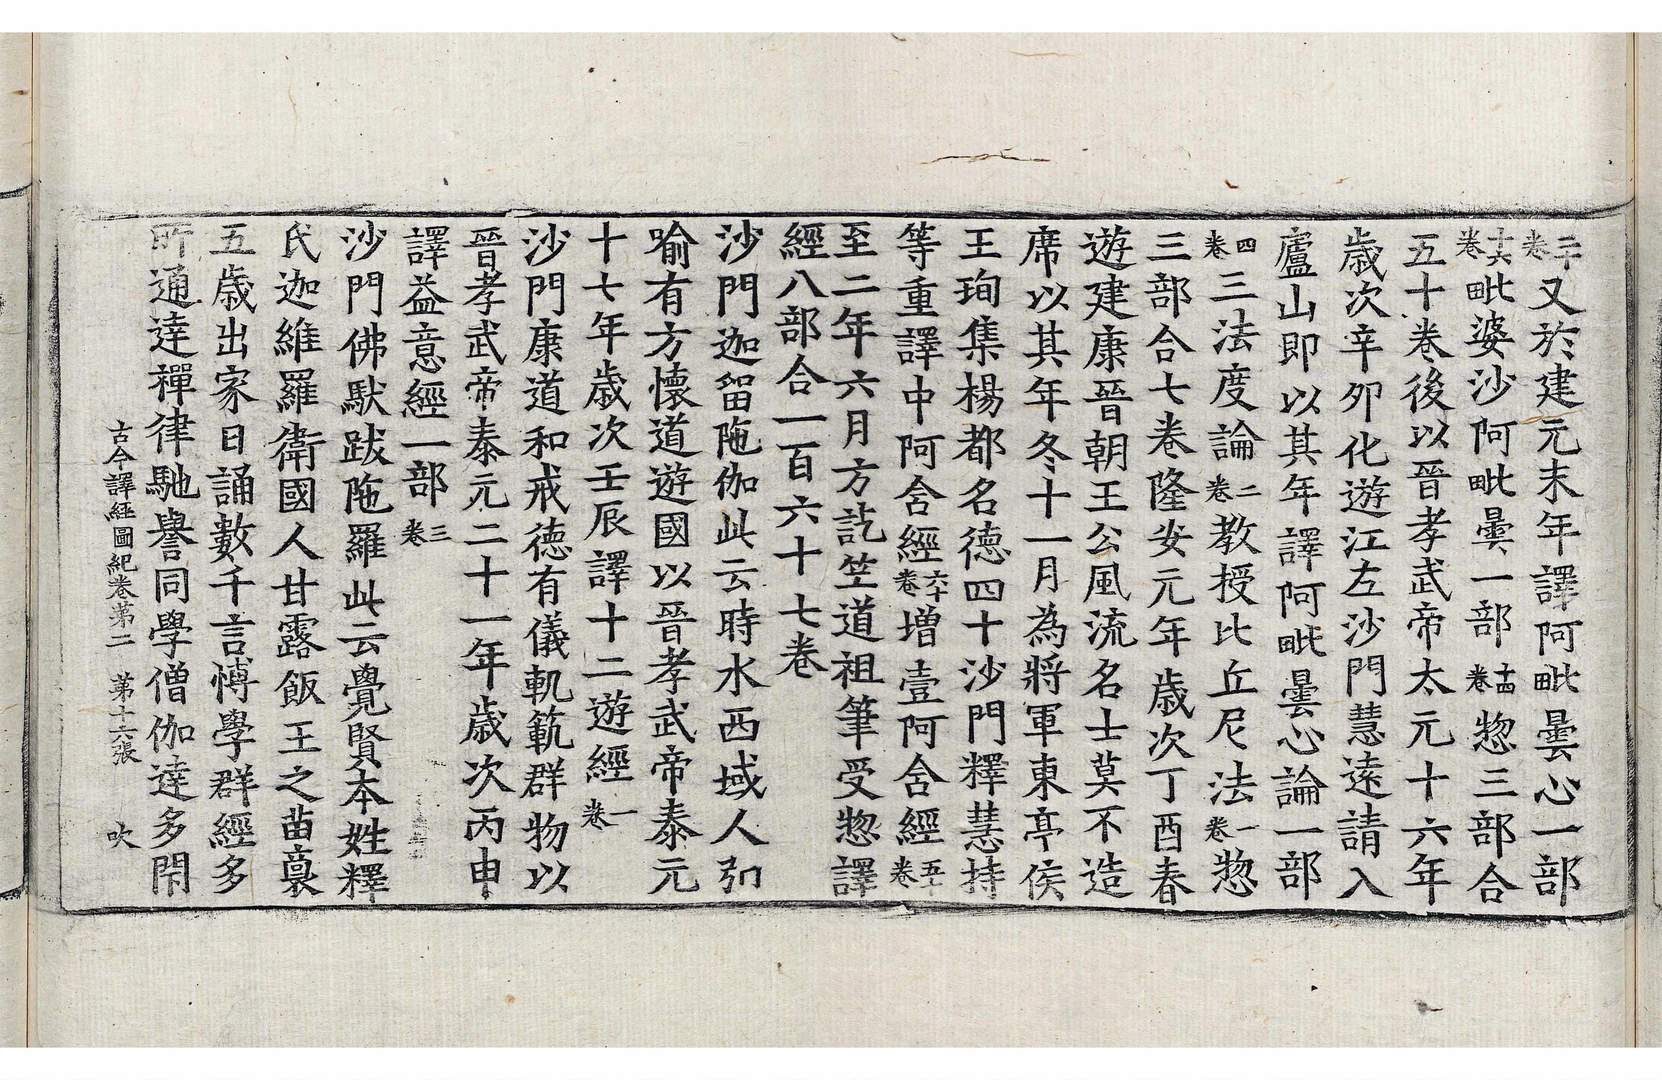 二十卷又於建元末年譯阿毗曇心一部
十六卷毗婆沙阿毗曇一部十四卷惣三部合
五十卷後以晉孝武帝太元十六年
歲次辛夘化遊江左沙門慧遠請入
廬山即以其年譯阿毗曇心論一部
四卷三法度論二卷教授比丘尼法一卷惣
三部合七卷隆安元年歲次丁酉春
遊建康晉朝王公風流名士莫不造
席以其年冬十一月為將軍東亭侯
王珣集楊都名德四十沙門釋慧持
等重譯中阿含經六十卷增壹阿含經五十卷
至二年六月方訖竺道祖筆受惣譯
經八部合一百六十七卷
沙門迦留陁伽此云時水西域人弘
喻有方懷道遊國以晉孝武帝泰元
十七年歲次壬辰譯十二遊經一卷
沙門康道和戒德有儀軌範群物以
晉孝武帝泰元二十一年歲次丙申
譯益意經一部三卷
沙門佛馱跋陁羅此云覺賢本姓釋
氏迦維羅衛國人甘露飯王之苗裔
五歲出家日誦數千言博學群經多
所通達禪律馳譽同學僧伽達多閇
古今譯經圖紀卷第二 第十六張 吹